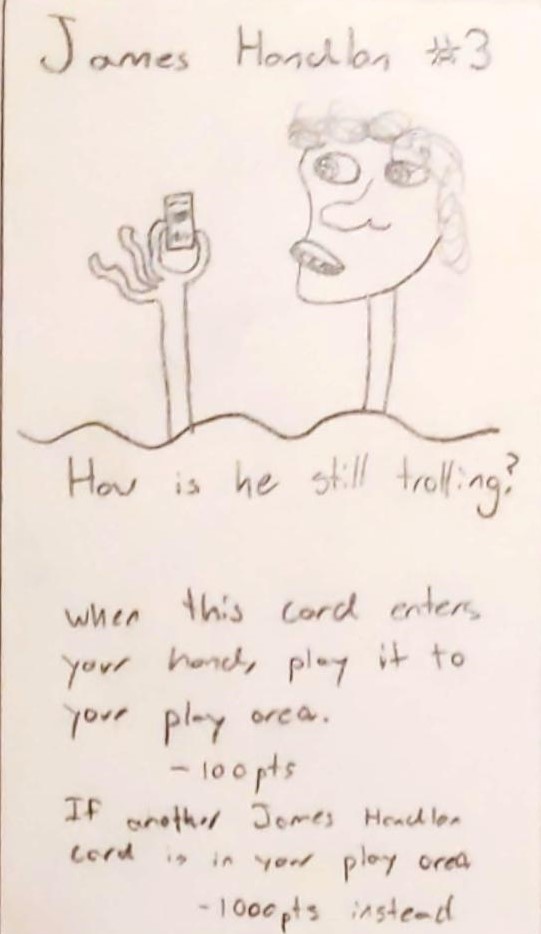 James Handlan #3
How is he still trolling?
when this card enters
your hand, play it to
your play area.
-100pts
If another James Handlan
card is in your play area
-1000pts instead